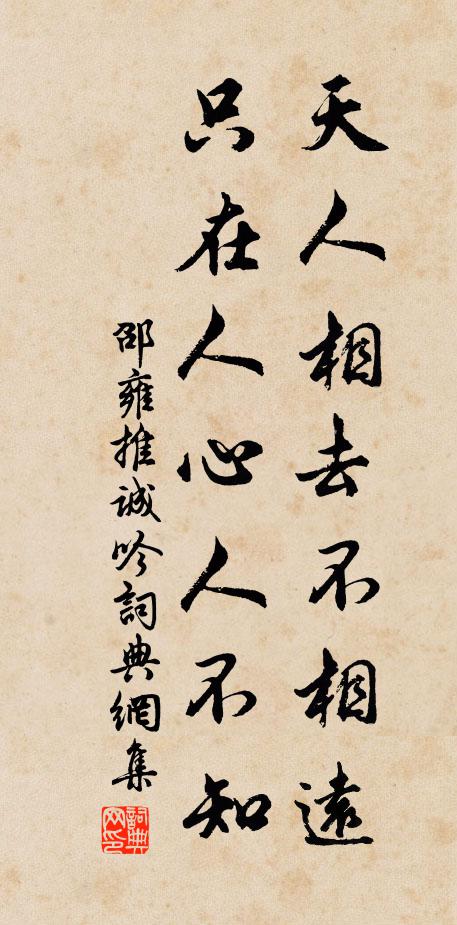 天人相去不相遠
只在人心人不知
邵雍推誠吟詞典網集
詞典网印